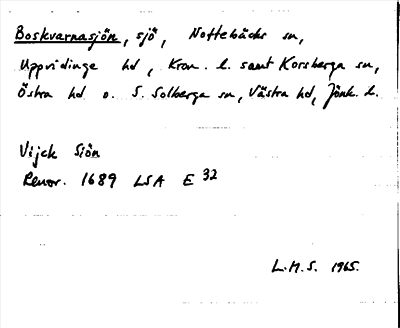 Boskvarnasjön, sjö, Nottebäcks sn,
Uppvidinge hd, Kron. l. samt Korsberga sn,
Östra hd o. S. Solberga sn, Västra hd, Jönk. l.
Vijck Siön
Renov. 1689 LSA E 32
L.M.S. 1965.